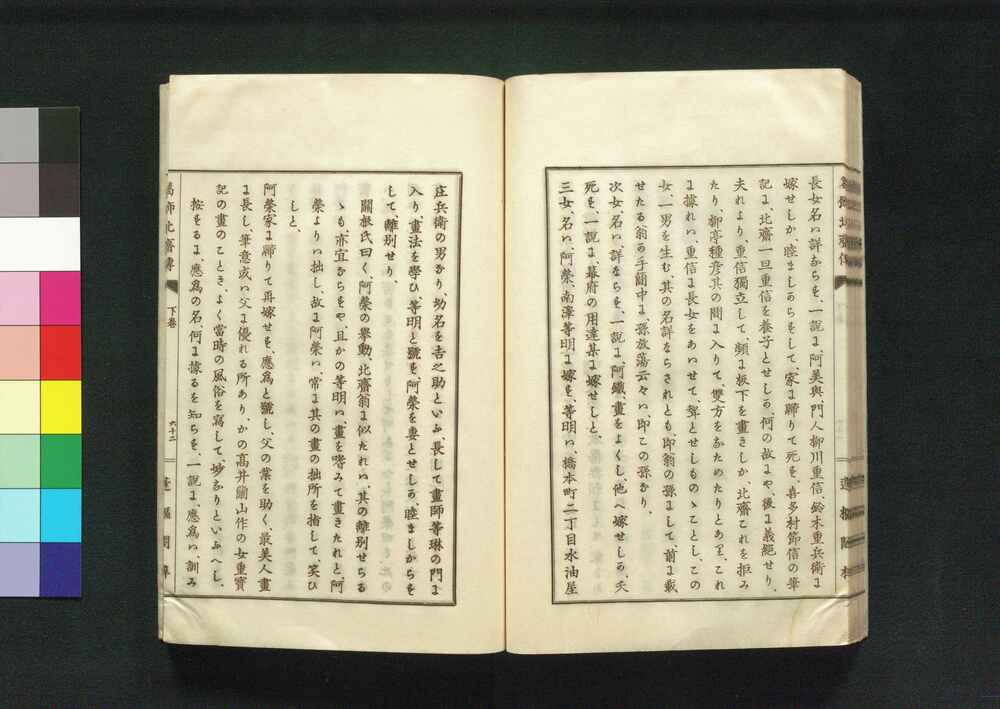 長女名ハ詳ならを、一説よ阿美與門人柳川重信、鈴木重兵衛よ
嫁せしか睦ましからをして、家よ歸りて死を、喜多村節信の筆
記よ、北齋一旦重信を養子とせしか、何の故よや、後よ義絕せり、
夫れより、重信獨立して、頻よ板下を畫きしか、北齋これを拒み
たり、柳亭種彦其の間よ入りて、雙方をなためたりとあり、これ
よ據れハ、重信よ長女をあハせて、聟とせしものゝことし、この
女一男を生む、其の名詳ならされとも、即翁の孫よして、前よ載
せたる翁の手簡中よ、孫放蕩云々ハ、即この孫なり、
次女名ハ、詳ならを、一說よ阿鐵、畫をよくし、他へ嫁せしか、夭
死を、一說よ、幕府の用達某よ嫁せしと、
三女、名ハ、阿榮、南澤等明よ嫁を、等明ハ、橋本町二丁目水油屋
庄兵衛の男なり、幼名を吉之助といふ、長して畫師等琳の門よ
入り、畫法を學ひ、等明と號を、阿榮を妻とせしか、睦ましからを
して、離別せり、
關根氏曰く、阿榮の擧動、北齋翁よ似たれハ、其の離別せらる
ゝも、亦宜ならをや、且かの等明ハ、畫を嗜みて畫きたれと阿
榮よりハ拙し、故よ阿榮ハ、常よ其の畫の拙所を指して笑ひ
しと、
阿榮家よ歸りて再嫁せを、應爲と號し、父の業を助く、最美人畫
よ長し、筆意或ハ父よ優れる所あり、かの高井蘭山作の女重寶
記の畫のことき、よく當時の風俗を寫して、妙なりといふへし、
按をるよ、應爲の名、何よ據るを知らを、一說よ、應爲ハ、訓み
飾北齋傳
下卷
六十二